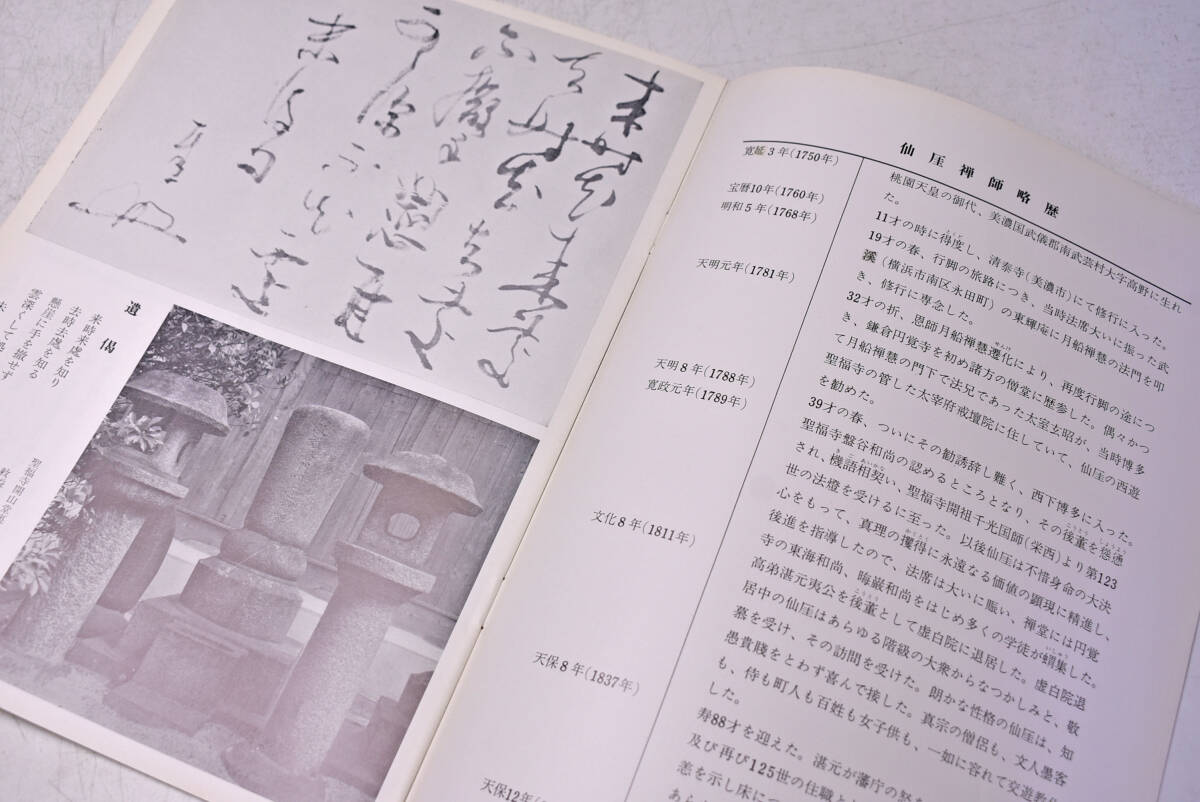 仙厓禅師略歴
寛延3年(1750年)
桃園天皇の御代、美濃国武儀郡南武芸村大字高野に生れ
た。
宝暦10年(1760年)
11才の時に得度し、清泰寺(美濃市)にて修行に入った。
明和5年(1768年)
19才の春、行脚の旅路につき、当時法席大いに振った武
溪(横浜市南区永田町)の東輝庵に月船禅慧の法門を叩
き、修行に専念した。
天明元年(1781年)
32才の折、恩師月船禅慧遷化により、再度行脚の途につ
き、鎌倉円覚寺を初め諸方の僧堂に歴参した。偶々かつ
て月船禅慧の門下で法兄であった太室玄昭が、当時博多
聖福寺の管した太宰府戒壇院に住していて、仙厓の西遊
を勧めた。
天明8年(1788年)
39才の春、ついにその勧誘辞し難く、西下博多に入った。
寛政元年(1789年)
聖福寺盤谷和尚の認めるところとなり、その後董を慫慂
され、機語相契い、聖福寺開祖千光国師(栄西)より第123
世の法燈を受けるに至った。以後仙厓は不惜身命の大決
心をもって、真理の攫得に永遠なる価値の顕現に精進し、
後進を指導したので、法席は大いに賑い、禅堂には円覚
寺の東海和尚、晦巌和尚をはじめ多くの学徒が蝟集した。
文化8年(1811年)
高弟湛元夷公を後董として虚白院に退居した。虚白院退
居中の仙厓はあらゆる階級の大衆からなつかしみと、敬
慕を受け、その訪問を受けた。朗かな性格の仙厓は、知
愚貴賤をとわず喜んで接した。真宗の僧侶も、文人墨客
も、侍も町人も百姓も女子供も、一如に容れて交遊
した。
天保8年(1837年)
寿88才を迎えた。湛元が藩庁の
及び再び125世の住職と
恙を示し床に
天保12年(
遺偈
来時来處を知り
去時去處を知る
懸崖に手を撤せず
雲深くして処
聖福寺開山堂